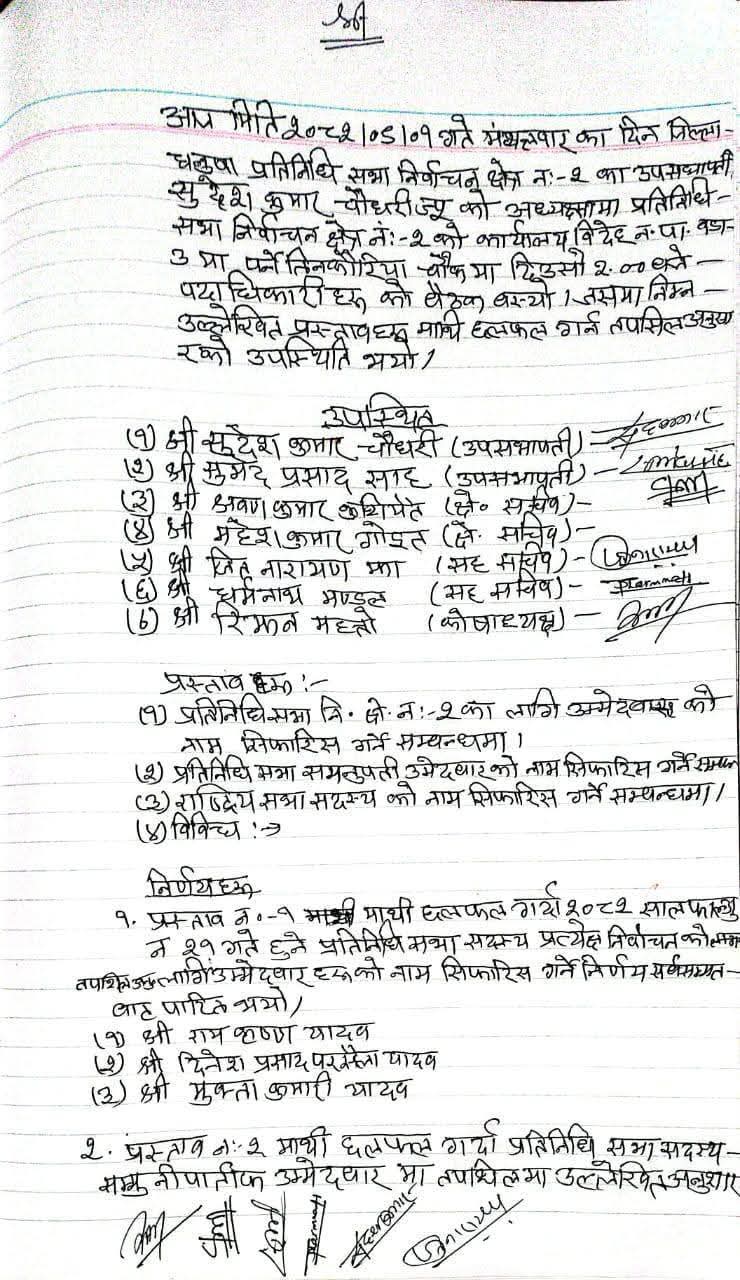 श्री
आज मिति २०८२।०९।०१ गते मंगलवार का दिन जिल्ला-
धनुषा प्रतिनिधि सभा निर्वाचन क्षेत्र नः-२ का उपसभापती
सुदेश कुमार चौधरीज्यू को अध्यक्षतामा प्रतिनिधि-
सभा निर्वाचन क्षेत्र नं:-२ को कार्यालय विदेह न.पा. वडा-
३ मा पर्ने तिनकौरिया चौक मा दिउसो २.०० बजे-
पदाधिकारी हरु को बैठक बस्यो। जसमा निम्न-
उल्लेखित प्रस्तावहरु माथी छलफल गर्न तपसिल अनुसा
रको उपस्थिति भयो।
उपस्थित
(१) श्री सुदेश कुमार चौधरी (उपसभापती) -
(२) श्री प्रसाद साह (उपसभापती) -
(३) श्री श्रवण कुमार (क्षे॰ सचिव) -
(४) श्री महेश कुमार गोइत (क्षे. सचिव) -
(५) श्री जित नारायण झा (सह सचिव) -
(६) श्री धर्मनाथ मण्डल (सह सचिव) -
(७) श्री महतो (कोषाध्यक्ष) -
प्रस्ताव हरु :-
(१) प्रतिनिधि सभा नि. क्षे. न:-२ का लागि उम्मेदवारहरु को
नाम सिफारिस गर्ने सम्बन्धमा।
(२) प्रतिनिधि सभा समानुपाती उमेदवारको नाम सिफारिस गर्ने
(३) राष्ट्रिय सभा सदस्य को नाम सिफारिस गर्ने सम्बन्धमा।
(४) विविध :→
निर्णयहरु
१. प्रस्ताव नं०-१ माथी छलफल गर्दा २०८२ साल फाल्गु
न २१ गते हुने प्रतिनिधि सभा सदस्य प्रत्यक्ष निर्वाचन को
लागि उम्मेदवार हरुको नाम सिफारिस गर्ने निर्णय सर्वसम्मत-
बाट पारित भयो।
(१) श्री राम कृष्ण यादव
(२) श्री दिनेश प्रसाद परसैला यादव
(३) श्री मुक्ता कुमारी यादव
२. प्रस्ताव नः-२ माथी छलफल गर्दा प्रतिनिधि सभा सदस्य-
उम्मेदवार मा तपशिलमा उल्लेखित अनुशार